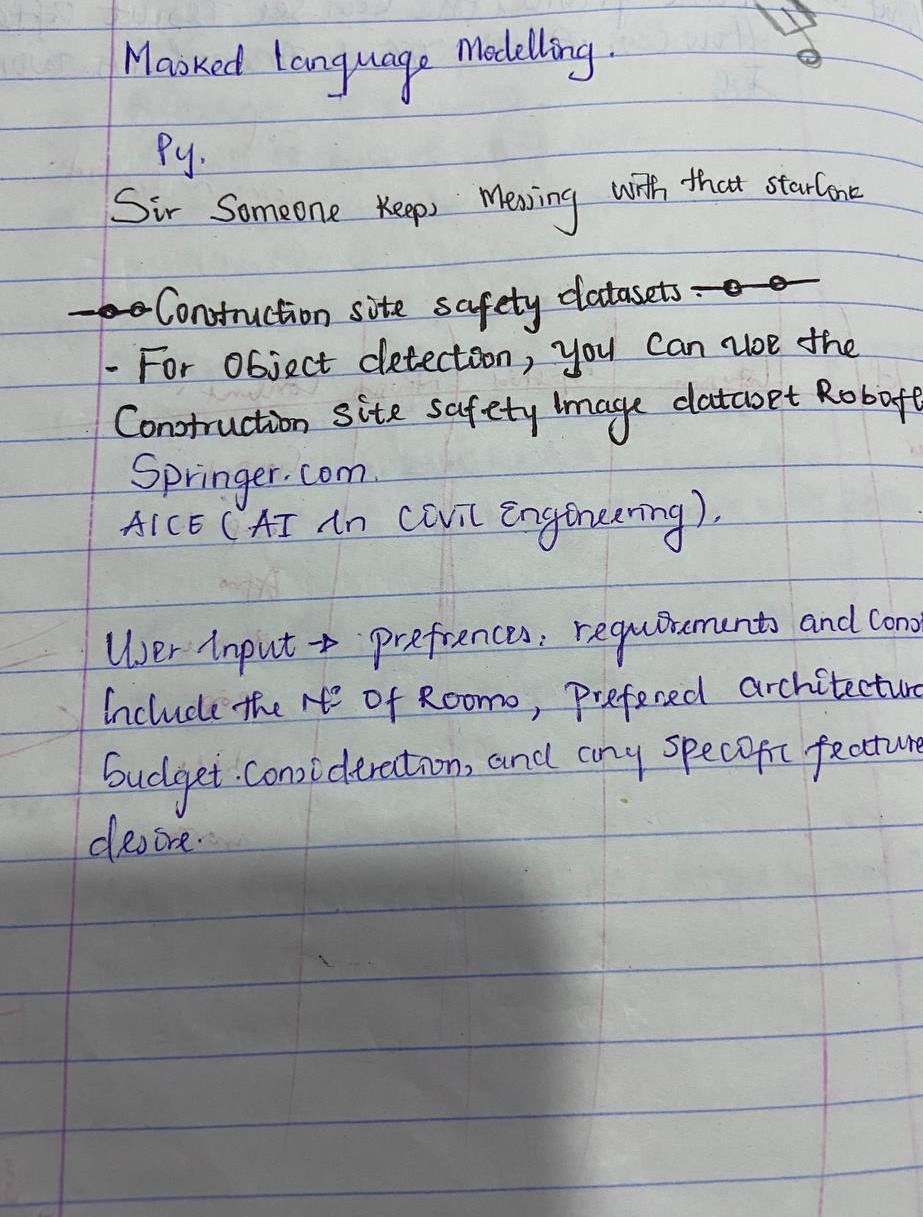 Masked language Modelling.
Py.
Sir Someone Keeps Messing with that starlink
Construction site safety datasets.
- For Object detection, you can use the
Construction site safety Image dataset Robofl
Springer.com.
AICE (AI In Civil Engineering).
User Input → prefrences, requirements and cons
Include the Nº Of Rooms, Prefered architectur
budget consideration, and any specific feature
desire.